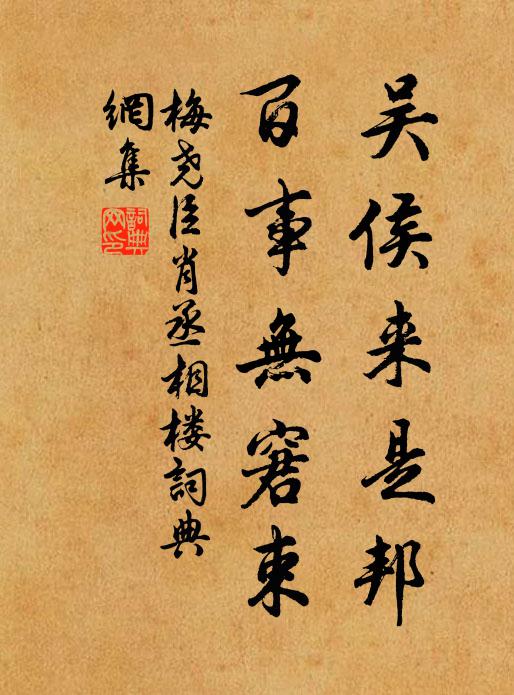 吴侯来是邦
百事無窘束
梅尧臣肖丞相楼詞典
網集
詞典
网印